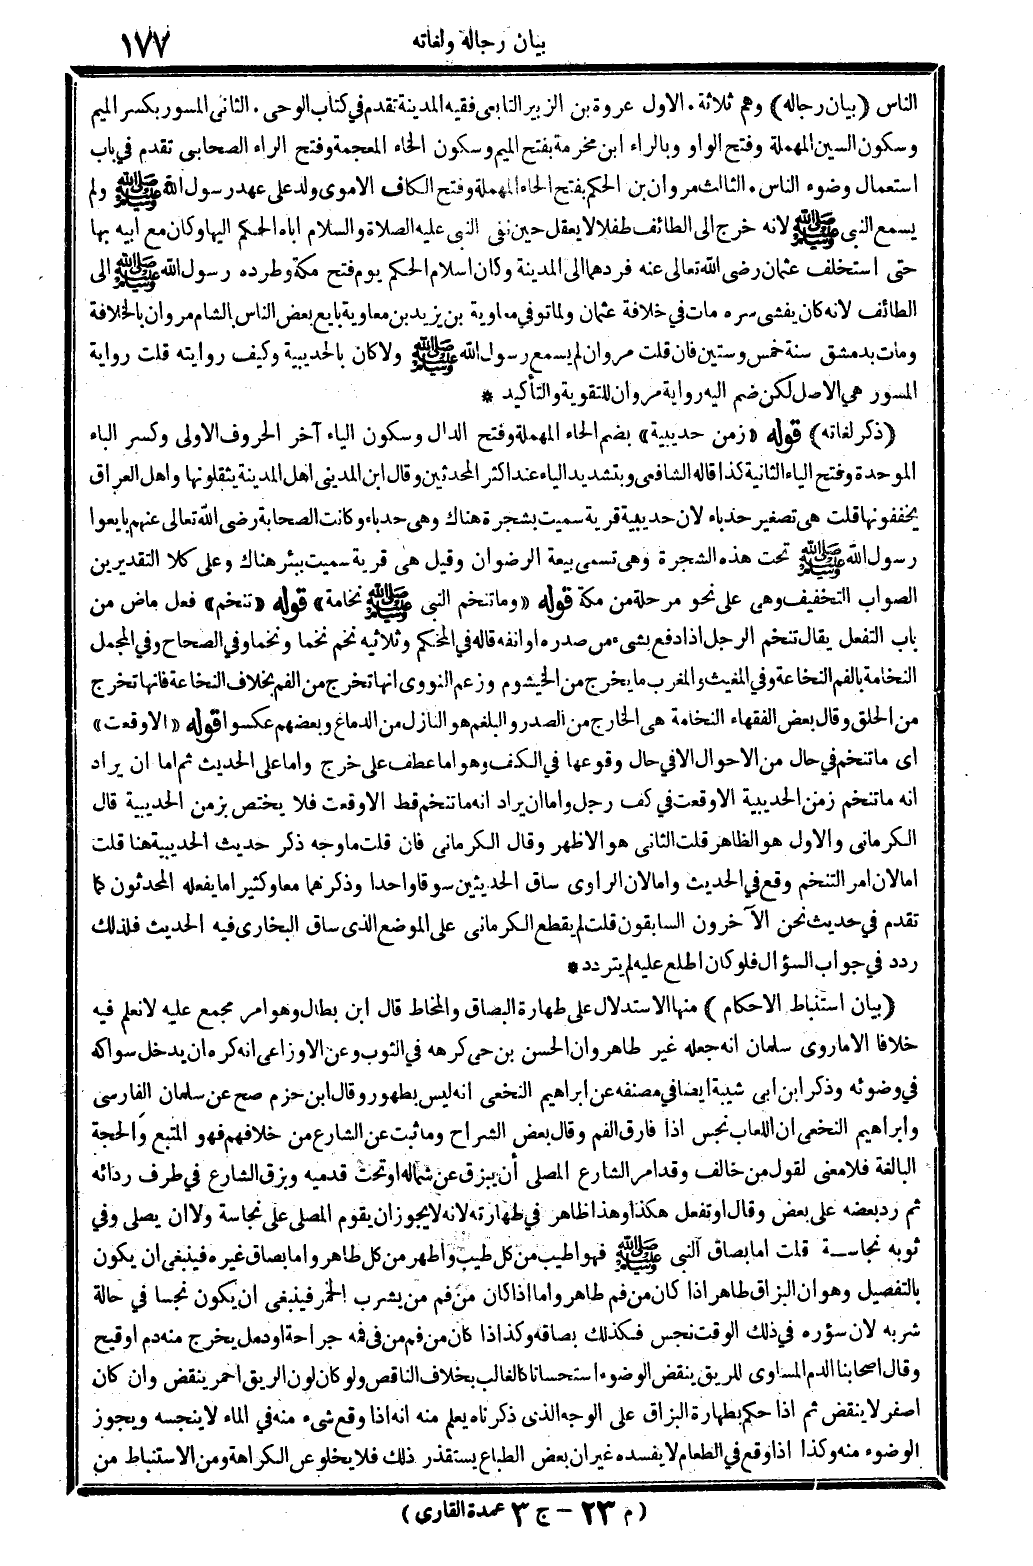 بيان رجاله ولغاته ١٧٧
الناس (بيان رجاله) وهم ثلاثة. الاول عروة بن الزبير التابعى فقيه المدينة تقدم في كتاب الوحى. الثانى المسور بكسر الميم
وسكون السين المهملة وفتح الواو وبالراء ابن مخرمة بفتح الميم وسكون الخاء المعجمة وفتح الراء الصحابى تقدم في باب
استعمال وضوء الناس. الثالث مروان بن الحكم بفتح الحاء المهملة وفتح الكاف الاموى ولد على عهد رسول الله ﷺ ولم
يسمع النبى ﷺ لانه خرج الى الطائف طفلا لا يعقل حين نفى النبى عليه الصلاة والسلام اباه الحكم اليها وكان مع ابيه بها
حتى استخلف عثمان رضى الله تعالى عنه فردهما الى المدينة وكان اسلام الحكم يوم فتح مكة وطرده رسول الله ﷺ الى
الطائف لانه كان يفشى سره مات في خلافة عثمان ولما توفي معاوية بن يزيد بن معاوية بايع بعض الناس بالشام مروان بالخلافة
ومات بدمشق سنة خمس وستين فان قلت مروان لم يسمع رسول الله ﷺ ولا كان بالحديبية وكيف روايته قلت رواية
المسور هي الاصل لكن ضم اليه رواية مروان للتقوية والتأكيد *
(ذكر لغاته) قوله «زمن حديبية» بضم الحاء المهملة وفتح الدال وسكون الياء آخر الحروف الاولى وكسر الباء
الموحدة وفتح الياء الثانية كذا قاله الشافعى وبتشديد الياء عند اكثر المحدثين وقال ابن المدينى اهل المدينة يثقلونها واهل العراق
يخففونها قلت هى تصغير حدباء لان حديبية قرية سميت بشجرة هناك وهى حدباء وكانت الصحابة رضى الله تعالى عنهم بايعوا
رسول الله ﷺ تحت هذه الشجرة وهى تسمى بيعة الرضوان وقيل هى قرية سميت ببئر هناك وعلى كلا التقديرين
الصواب التخفيف وهى على نحو مرحلة من مكة قوله «وما تنخم النبى ﷺ نخامة» قوله «تنخم» فعل ماض من
باب التفعل يقال تنخم الرجل اذا دفع بشىء من صدره او انفه قاله في المحكم وثلاثيه نخم نخما ونخما وفي الصحاح وفي المجمل
النخامة بالفم النخاعة وفي المغيث والمغرب ما يخرج من الخيشوم وزعم النووى انها تخرج من الفم بخلاف النخاعة فانها تخرج
من الحلق وقال بعض الفقهاء النخامة هى الخارج من الصدر والبلغم هو النازل من الدماغ وبعضهم عكسوا قوله «الا وقعت»
اى ما تنخم في حال من الاحوال الا في حال وقوعها في الكف وهو اما عطف على خرج واما على الحديث ثم اما ان يراد
انه ما تنخم زمن الحديبية الا وقعت في كف رجل واما ان يراد انه ما تنخم قط الا وقعت فلا يختص بزمن الحديبية قال
الكرمانى والاول هو الظاهر قلت الثانى هو الاظهر وقال الكرمانى فان قلت ما وجه ذكر حديث الحديبية هنا قلت
اما لان امر التنخم وقع في الحديث واما لان الراوى ساق الحديثين سوقا واحدا وذكرهما معا وكثيرا ما يفعله المحدثون كما
تقدم في حديث نحن الآخرون السابقون قلت لم يقطع الكرمانى على الموضع الذى ساق البخارى فيه الحديث فلذلك
ردد في جواب السؤال فلو كان اطلع عليه لم يتردد *
(بيان استنباط الاحكام) منها الاستدلال على طهارة البصاق والمخاط قال ابن بطال وهو امر مجمع عليه لا نعلم فيه
خلافا الا ما روى سلمان انه جعله غير طاهر وان الحسن بن حى كرهه في الثوب وعن الاوزاعى انه كره ان يدخل سواكه
في وضوئه وذكر ابن ابى شيبة ايضا في مصنفه عن ابراهيم النخعى انه ليس بطهور وقال ابن حزم صح عن سلمان الفارسى
وأبراهيم النخعى ان اللعاب نجس اذا فارق الفم وقال بعض الشراح وما ثبت عن الشارع من خلافهم فهو المتبع والحجة
البالغة فلا معنى لقول من خالف وقد امر الشارع المصلى أن يبزق عن شماله او تحت قدميه وبزق الشارع في طرف ردائه
ثم رد بعضه على بعض وقال او تفعل هكذا وهذا ظاهر في طهارته لانه لا يجوز ان يقوم المصلى على نجاسة ولا ان يصلى وفي
ثوبه نجاسة قلت اما بصاق النبى ﷺ فهو اطيب من كل طيب واطهر من كل طاهر واما بصاق غيره فينبغى ان يكون
بالتفصيل وهو ان البزاق طاهر اذا كان من فم طاهر واما اذا كان من فم من يشرب الخمر فينبغى ان يكون نجسا في حالة
شربه لان سؤره في ذلك الوقت نجس فكذلك بصاقه وكذا اذا كان من فم من فى فمه جراحة او دمل يخرج منه دم او قيح
وقال اصحابنا الدم المساوى للريق ينقض الوضوء استحسانا كالغالب بخلاف الناقص ولو كان لون الريق احمر ينقض وان كان
اصفر لا ينقض ثم اذا حكم بطهارة البزاق على الوجه الذى ذكرناه يعلم منه انه اذا وقع شىء منه في الماء لا ينجسه ويجوز
الوضوء منه وكذا اذا وقع في الطعام لا يفسده غير ان بعض الطباع يستقذر ذلك فلا يخلو عن الكراهة ومن الاستنباط من
(م ٢٣ - ج ٣ عمدة القارى)